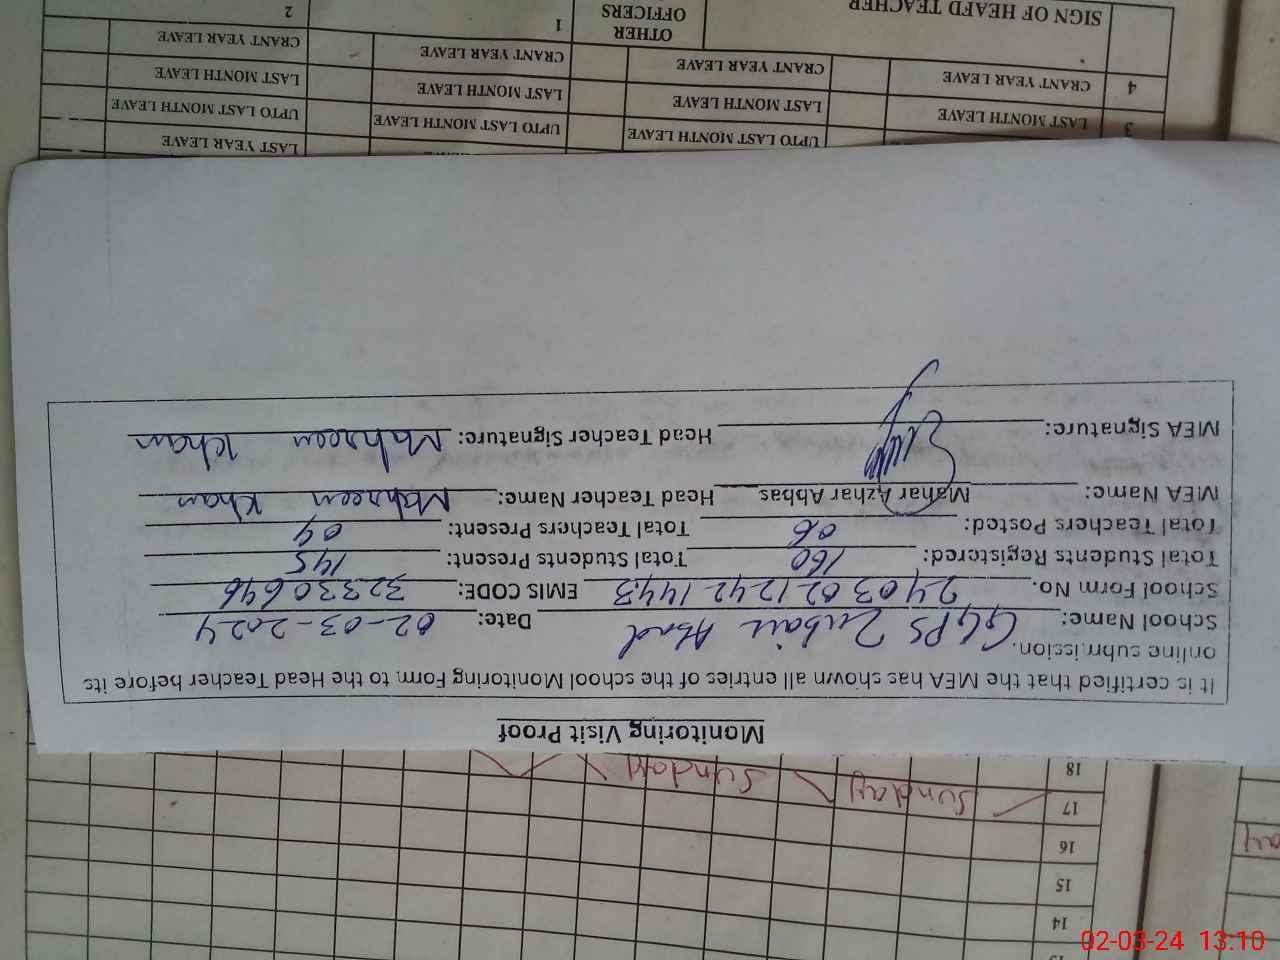 Monitoring Visit Proof
It is certified that the MEA has shown all entries of the school Monitoring Form to the Head Teacher before its
online submission.
School Name: GGPS Zubair Abad Date: 02-03-2024
School Form No. 2403021242 1443 EMIS CODE: 32330646
Total Students Registered: 160 Total Students Present: 145
Total Teachers Posted: 06 Total Teachers Present: 04
MEA Name: Mahar Azhar Abbas Head Teacher Name: Mahreen Khan
MEA Signature: Head Teacher Signature: Mahreen Khan
14
15
16
17 Sunday Sunday
18
LAST YEAR LEAVE
UPTO LAST MONTH LEAVE UPTO LAST MONTH LEAVE UPTO LAST MONTH
LAST MONTH LEAVE LAST MONTH LEAVE LAST MONTH LEAVE LAST MONTH LEAVE 3
CRANT YEAR LEAVE CRANT YEAR LEAVE CRANT YEAR LEAVE CRANT YEAR LEAVE 4
2 1 OTHER OFFICERS SIGN OF HEAFD TEACHER
02-03-24 13:10